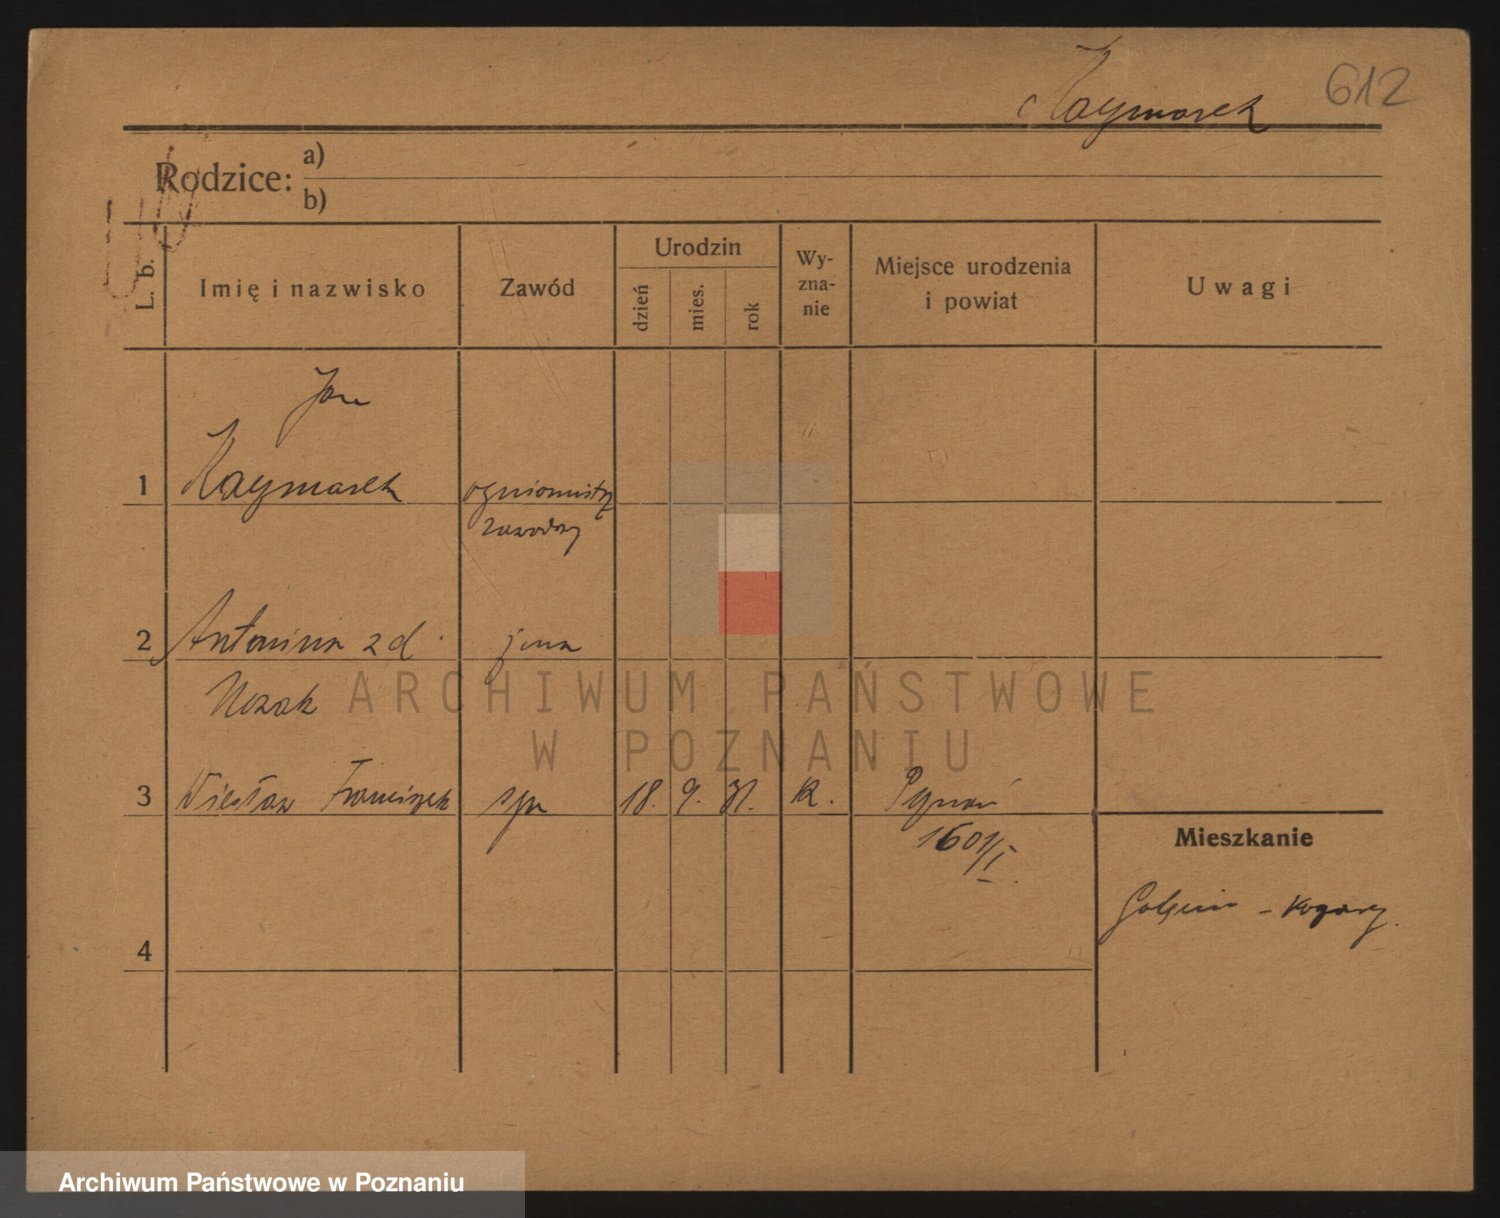 Kaczmarek 612
Rodzice: a)
b)
L. b.
Imię i nazwisko
Zawód
Urodzin
dzień
mies.
rok
Wy-
zna-
nie
Miejsce urodzenia
i powiat
Uwagi
Jan
1 Kaczmarek ogniomistrz
zawodowy
2 Antonina z d. żona
Nowak
3 Wiesław Franciszek syn 18. 9. 31. R.
1601/I.
Mieszkanie
Golęcin - Koszary.
4
ARCHIWUM PAŃSTWOWE
W POZNANIU
Archiwum Państwowe w Poznaniu